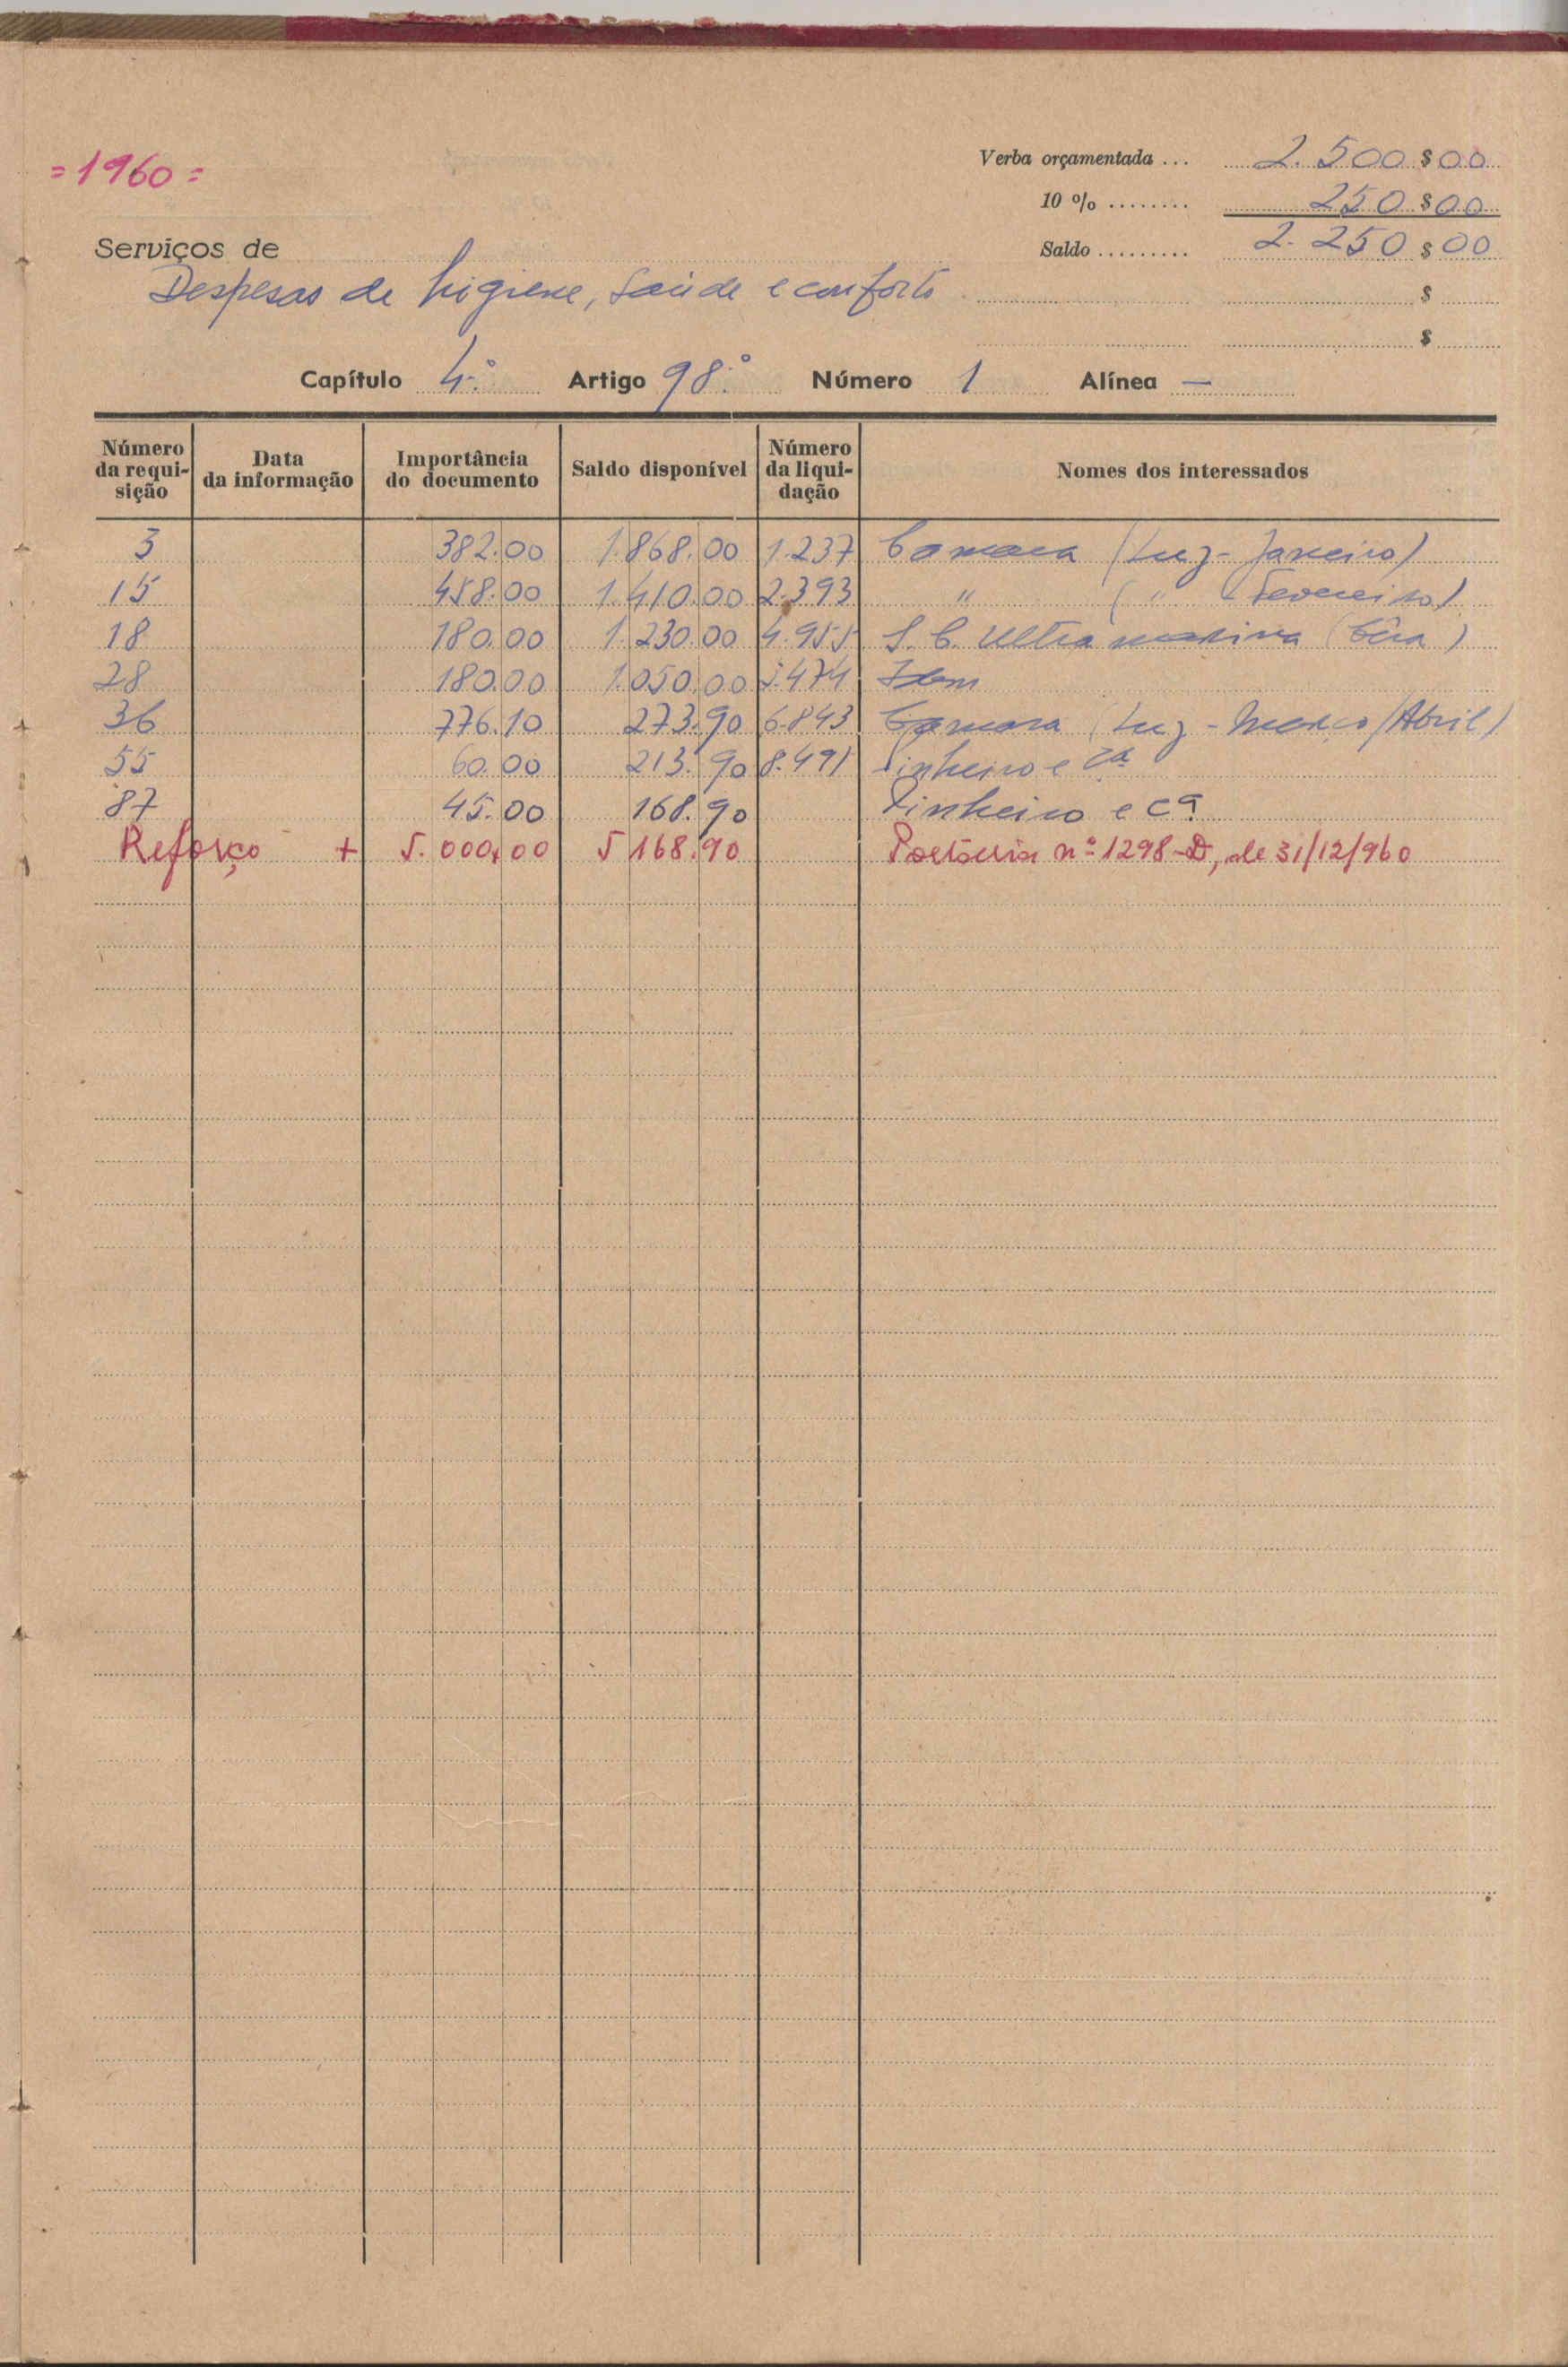 =1960=
Verba orçamentada ... 2.500$00
10 % ........ 250$00
Serviços de
Saldo ......... 2.250$00
Despesas de higiene, saúde e conforto
$
$
Capítulo 4.º Artigo 98.º Número 1 Alínea —
Número da requi-sição Data da informação Importância do documento Saldo disponível Número da liqui-dação Nomes dos interessados
3 382.00 1.868.00 1.237 Camara (Luz - Janeiro)
15 458.00 1.410.00 2.393 " ( " Fevereiro)
18 180.00 1.230.00 4.955 S. C. Ultramarina (Cêra)
28 180.00 1.050.00 5.474 Idem
36 776.10 273.90 6.843 Camara (Luz - Março/Abril)
55 60.00 213.90 8.491 Pinheiro e Cª
87 45.00 168.90 Pinheiro e Cª
Reforço + 5.000,00 5168.90 Portaria nº 1298-D, de 31/12/960